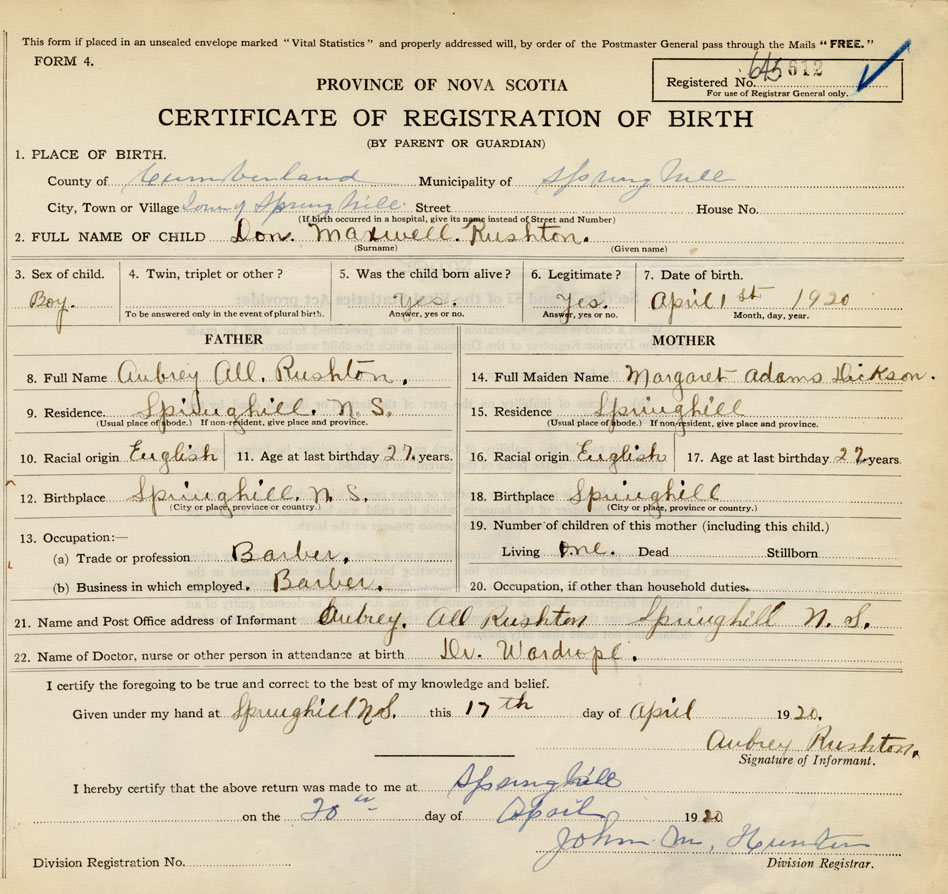 This form if placed in an unsealed envelope marked "Vital Statistics" and properly addressed will, by order of the Postmaster General pass through the Mails "FREE."
FORM 4.
Registered No. 612
For use of Registrar General only.
PROVINCE OF NOVA SCOTIA
CERTIFICATE OF REGISTRATION OF BIRTH
(BY PARENT OR GUARDIAN)
1. PLACE OF BIRTH.
County of Cumberland Municipality of Spring Hill
City, Town or Village Town of Spring Hill Street House No.
(If birth occurred in a hospital, give its name instead of Street and Number)
2. FULL NAME OF CHILD Don. Maxwell. Rushton.
(Surname) (Given name)
3. Sex of child. 4. Twin, triplet or other? 5. Was the child born alive? 6. Legitimate? 7. Date of birth.
Boy. Yes. Yes. April 1st 1920
To be answered only in the event of plural birth. Answer, yes or no. Answer, yes or no. Month, day, year.
FATHER MOTHER
8. Full Name Aubrey All. Rushton. 14. Full Maiden Name Margaret Adams Dickson.
9. Residence. Springhill. N. S. 15. Residence Springhill
(Usual place of abode.) If non-resident, give place and province. (Usual place of abode.) If non-resident, give place and province.
10. Racial origin English 11. Age at last birthday 27. years. 16. Racial origin English 17. Age at last birthday 22 years.
12. Birthplace Springhill. N. S. 18. Birthplace Springhill
(City or place, province or country.) (City or place, province or country.)
19. Number of children of this mother (including this child.)
13. Occupation:—
(a) Trade or profession Barber. Living one. Dead Stillborn
(b) Business in which employed. Barber. 20. Occupation, if other than household duties.
21. Name and Post Office address of Informant Aubrey. All Rushton Springhill N. S.
22. Name of Doctor, nurse or other person in attendance at birth Dr. Wardrope.
I certify the foregoing to be true and correct to the best of my knowledge and belief.
Given under my hand at Springhill N.S. this 17th day of April 1920.
Aubrey Rushton.
Signature of Informant.
I hereby certify that the above return was made to me at Springhill
on the 20 day of April 1920
John M. Hunter
Division Registration No. Division Registrar.